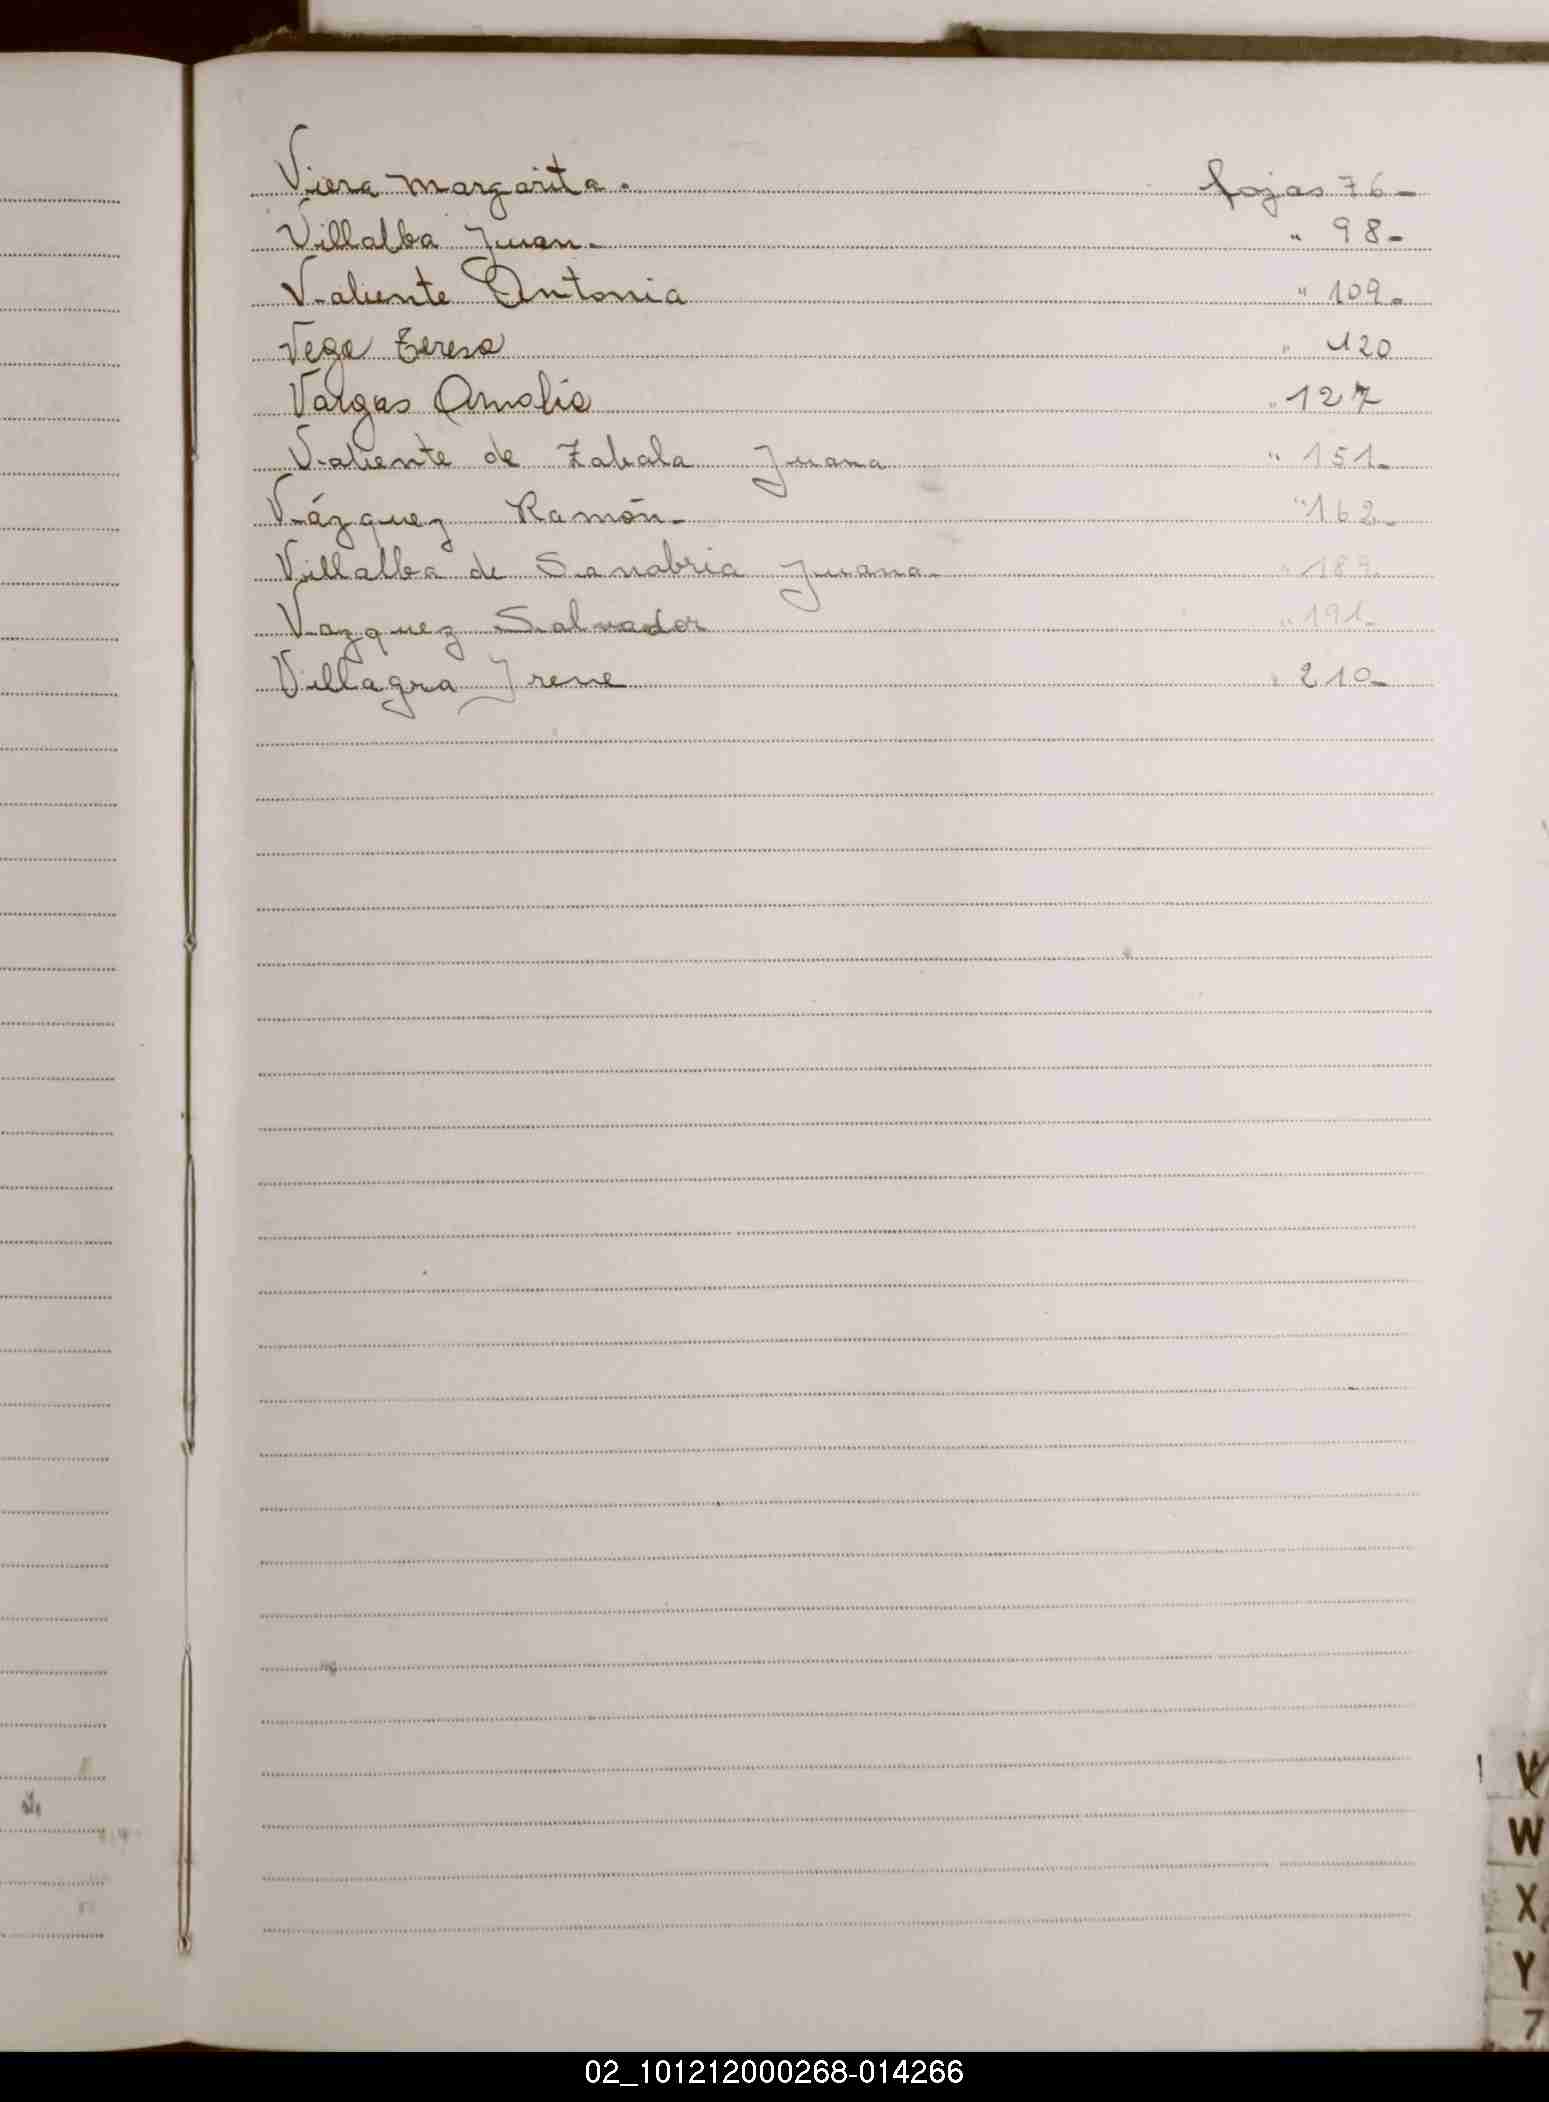 Viera Margarita. fojas 76-
Villalba Juan. " 98-
Valiente Antonia " 109-
Vega Teresa " 120
Vargas Amalia " 127
Valiente de Zabala Juana " 151-
Vázquez Ramón- " 162-
Villalba de Sanabria Juana- " 189-
Vazquez Salvador " 191-
Villagra Irene " 210-
V
W
X
Y
02_101212000268-014266